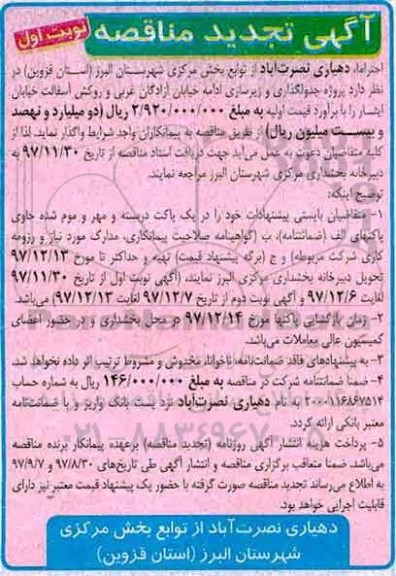 آگهی تجدید مناقصه نوبت اول
احتراما، دهیاری نصرت‌آباد از توابع بخش مرکزی شهرستان البرز (استان قزوین) در
نظر دارد پروژه جدولگذاری و زیرسازی ادامه خیابان آزادگان غربی و روکش آسفالت خیابان
ایشار را با برآورد قیمت اولیه به مبلغ ۲/۹۲۰/۰۰۰/۰۰۰ ریال (دو میلیارد و نهصد
و بیست میلیون ریال) از طریق مناقصه به پیمانکاران واجد شرایط واگذار نماید. لذا از
کلیه متقاضیان دعوت به عمل می‌آید جهت دریافت اسناد مناقصه از تاریخ ۹۷/۱۱/۳۰ به
دبیرخانه بخشداری مرکزی شهرستان البرز مراجعه نمایند.
توضیح اینکه:
۱- متقاضیان بایستی پیشنهادات خود را در یک پاکت دربسته و مهر و موم شده حاوی
پاکتهای الف (ضمانتنامه)، ب (گواهینامه صلاحیت پیمانکاری، مدارک مورد نیاز و رزومه
کاری شرکت مربوطه) و ج (برگه پیشنهاد قیمت) تهیه و حداکثر تا مورخ ۹۷/۱۲/۱۳
تحویل دبیرخانه بخشداری مرکزی البرز نمایند، (آگهی نوبت اول از تاریخ ۹۷/۱۱/۳۰
لغایت ۹۷/۱۲/۶ و آگهی نوبت دوم از تاریخ ۹۷/۱۲/۷ لغایت ۹۷/۱۲/۱۳) می‌باشد.
۲- زمان بازگشایی پاکتها مورخ ۹۷/۱۲/۱۴ در محل بخشداری و در حضور اعضای
کمیسیون عالی معاملات می‌باشد.
۳- به پیشنهادهای فاقد ضمانت‌نامه، ناخوانا، مخدوش و مشروط ترتیب اثر داده نخواهد شد.
۴- ضمنا ضمانتنامه شرکت در مناقصه به مبلغ ۱۴۶/۰۰۰/۰۰۰ ریال به شماره حساب
به نام دهیاری نصرت‌آباد نزد پست بانک واریز و یا ضمانت‌نامه
معتبر بانکی ارائه گردد.
۵- پرداخت هزینه انتشار آگهی روزنامه (تجدید مناقصه) برعهده پیمانکار برنده مناقصه
می‌باشد. ضمنا متعاقب برگزاری مناقصه و انتشار آگهی طی تاریخ‌های ۹۷/۸/۳۰ و ۹۷/۹/۷
به اطلاع می‌رساند تجدید مناقصه صورت گرفته با حضور یک پیشنهاد قیمت معتبر نیز دارای
قابلیت اجرایی خواهد بود.
دهیاری نصرت‌آباد از توابع بخش مرکزی
شهرستان البرز (استان قزوین)